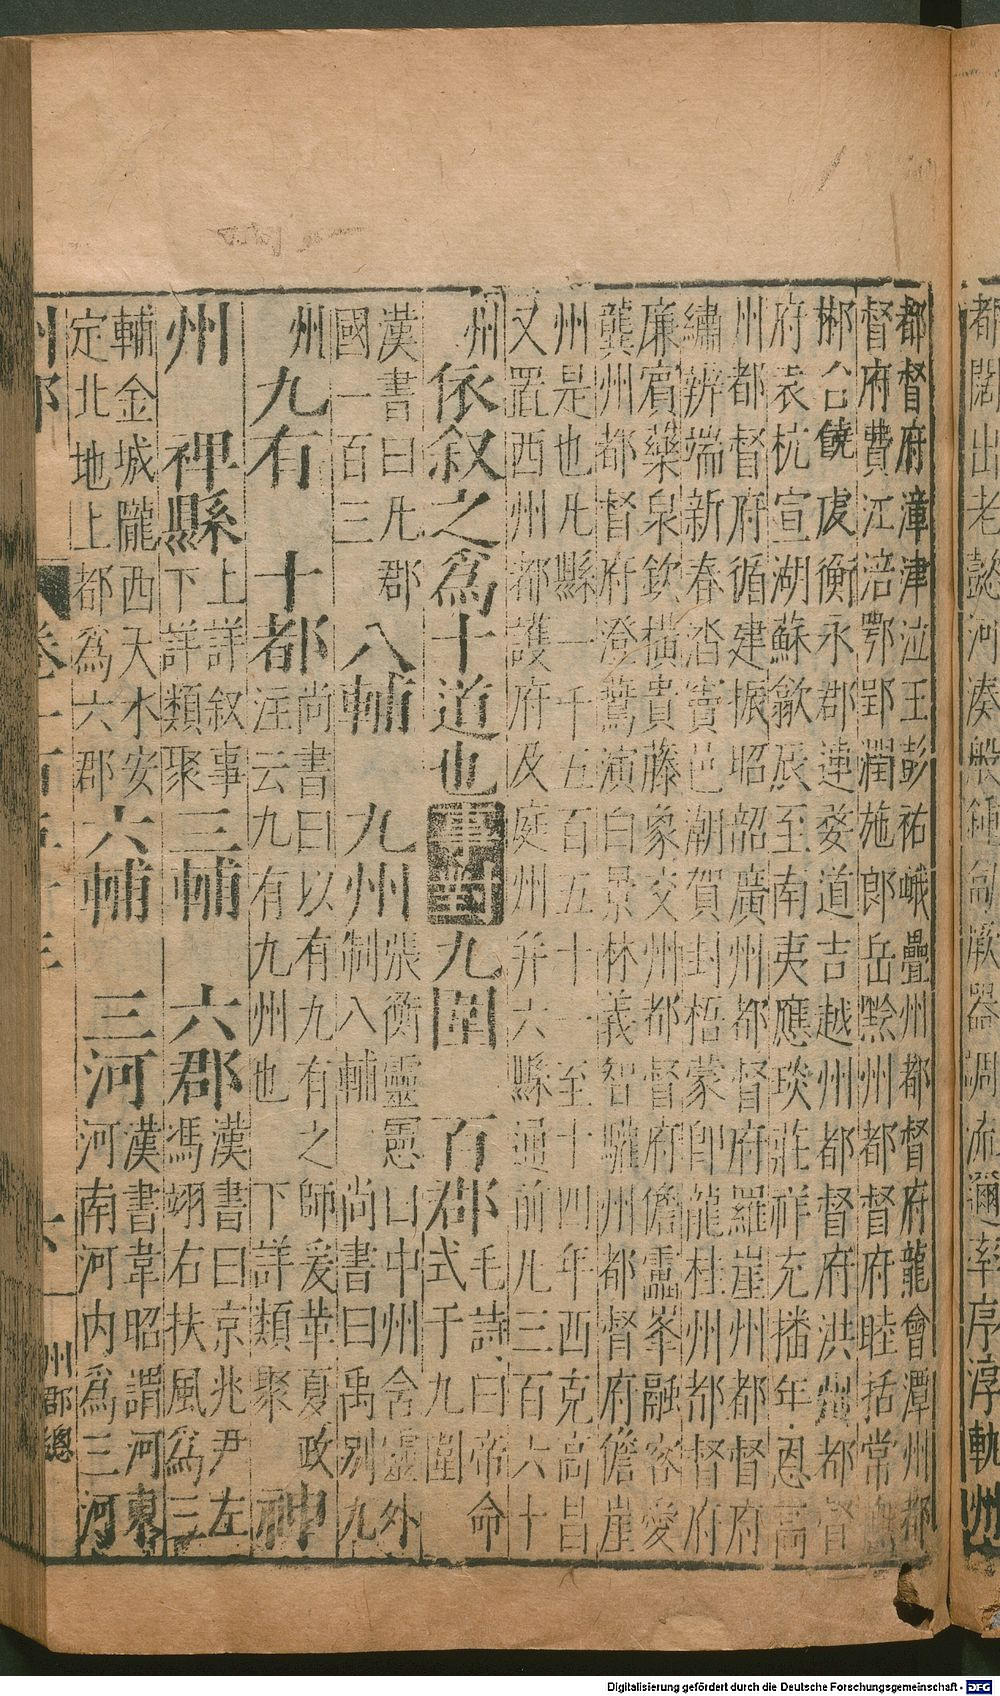 都督府漳津泣王彭祐峨疊州都督府龍會潭州都
督府費江涪鄂郢潤施郎岳黔州都督府睦括常
郴台饒虔衡永郡連婺道吉越州都督府洪州都督
府袁杭宣湖蘇歙辰至南夷應琰莊祥充播年恩高
州都督府循建振昭韶廣州都督府羅崖州都督府
繡辨端新春沓竇邕潮賀封梧蒙卽龍桂州都督府
廉賓藥泉欽橫貴藤象交州都督府儋靁峯融容愛
龔州都督府澄鷰演白景林義智驩州都督府儋崖
州是也凡縣一千五百五十一至十四年西克高昌
又置西州都護府及庭州幷六縣通前凡三百六十
州 依叙之爲十道也 事對 九圍 百郡 毛詩曰帝命
式于九圍
漢書曰凡郡
國一百三 八輔 九州 張衡靈憲曰中州含靈外
制八輔 尚書曰禹別九
州 九有 十都 尚書曰以有九有之師爰革夏政
注云九有九州也 下詳類聚 神
州 裨縣 上詳叙事
下詳類聚 三輔 六郡 漢書曰京兆尹左
馮翊右扶風爲三
輔金城隴西天水安
定北地上都爲六郡 六輔 三河 漢書韋昭謂河東
河南河内爲三河
州郡總
Digitalisierung gefördert durch die Deutsche Forschungsgemeinschaft - DFG